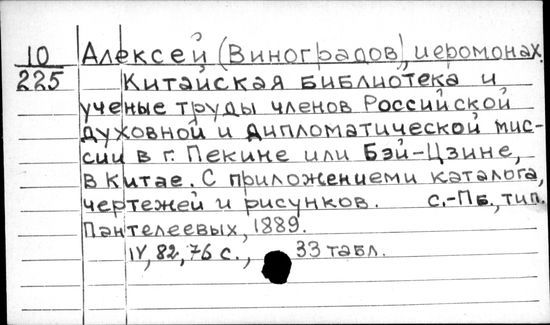 10 Алексей (Виноградов), иеромонах.
225 Китайская библиотека и
ученые труды членов Российской
духовной и дипломатической мис-
сии в г. Пекине или Бэй-Цзине,
в Китае. С приложениеми каталога,
чертежей и рисунков. С.-Пб., тип.
Пантелеевых, 1889.
IV, 82, 76 с., 33 табл.